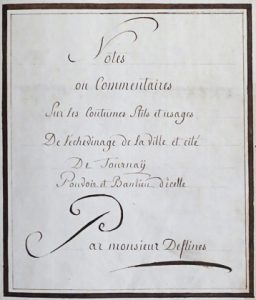 Notes
ou Commentaires
Sur les Coutumes Stils et usages
De l'echevinage de la ville et cité
De Tournaÿ
Pouvoir et Banlieu d'icelle
Par monsieur Deflines